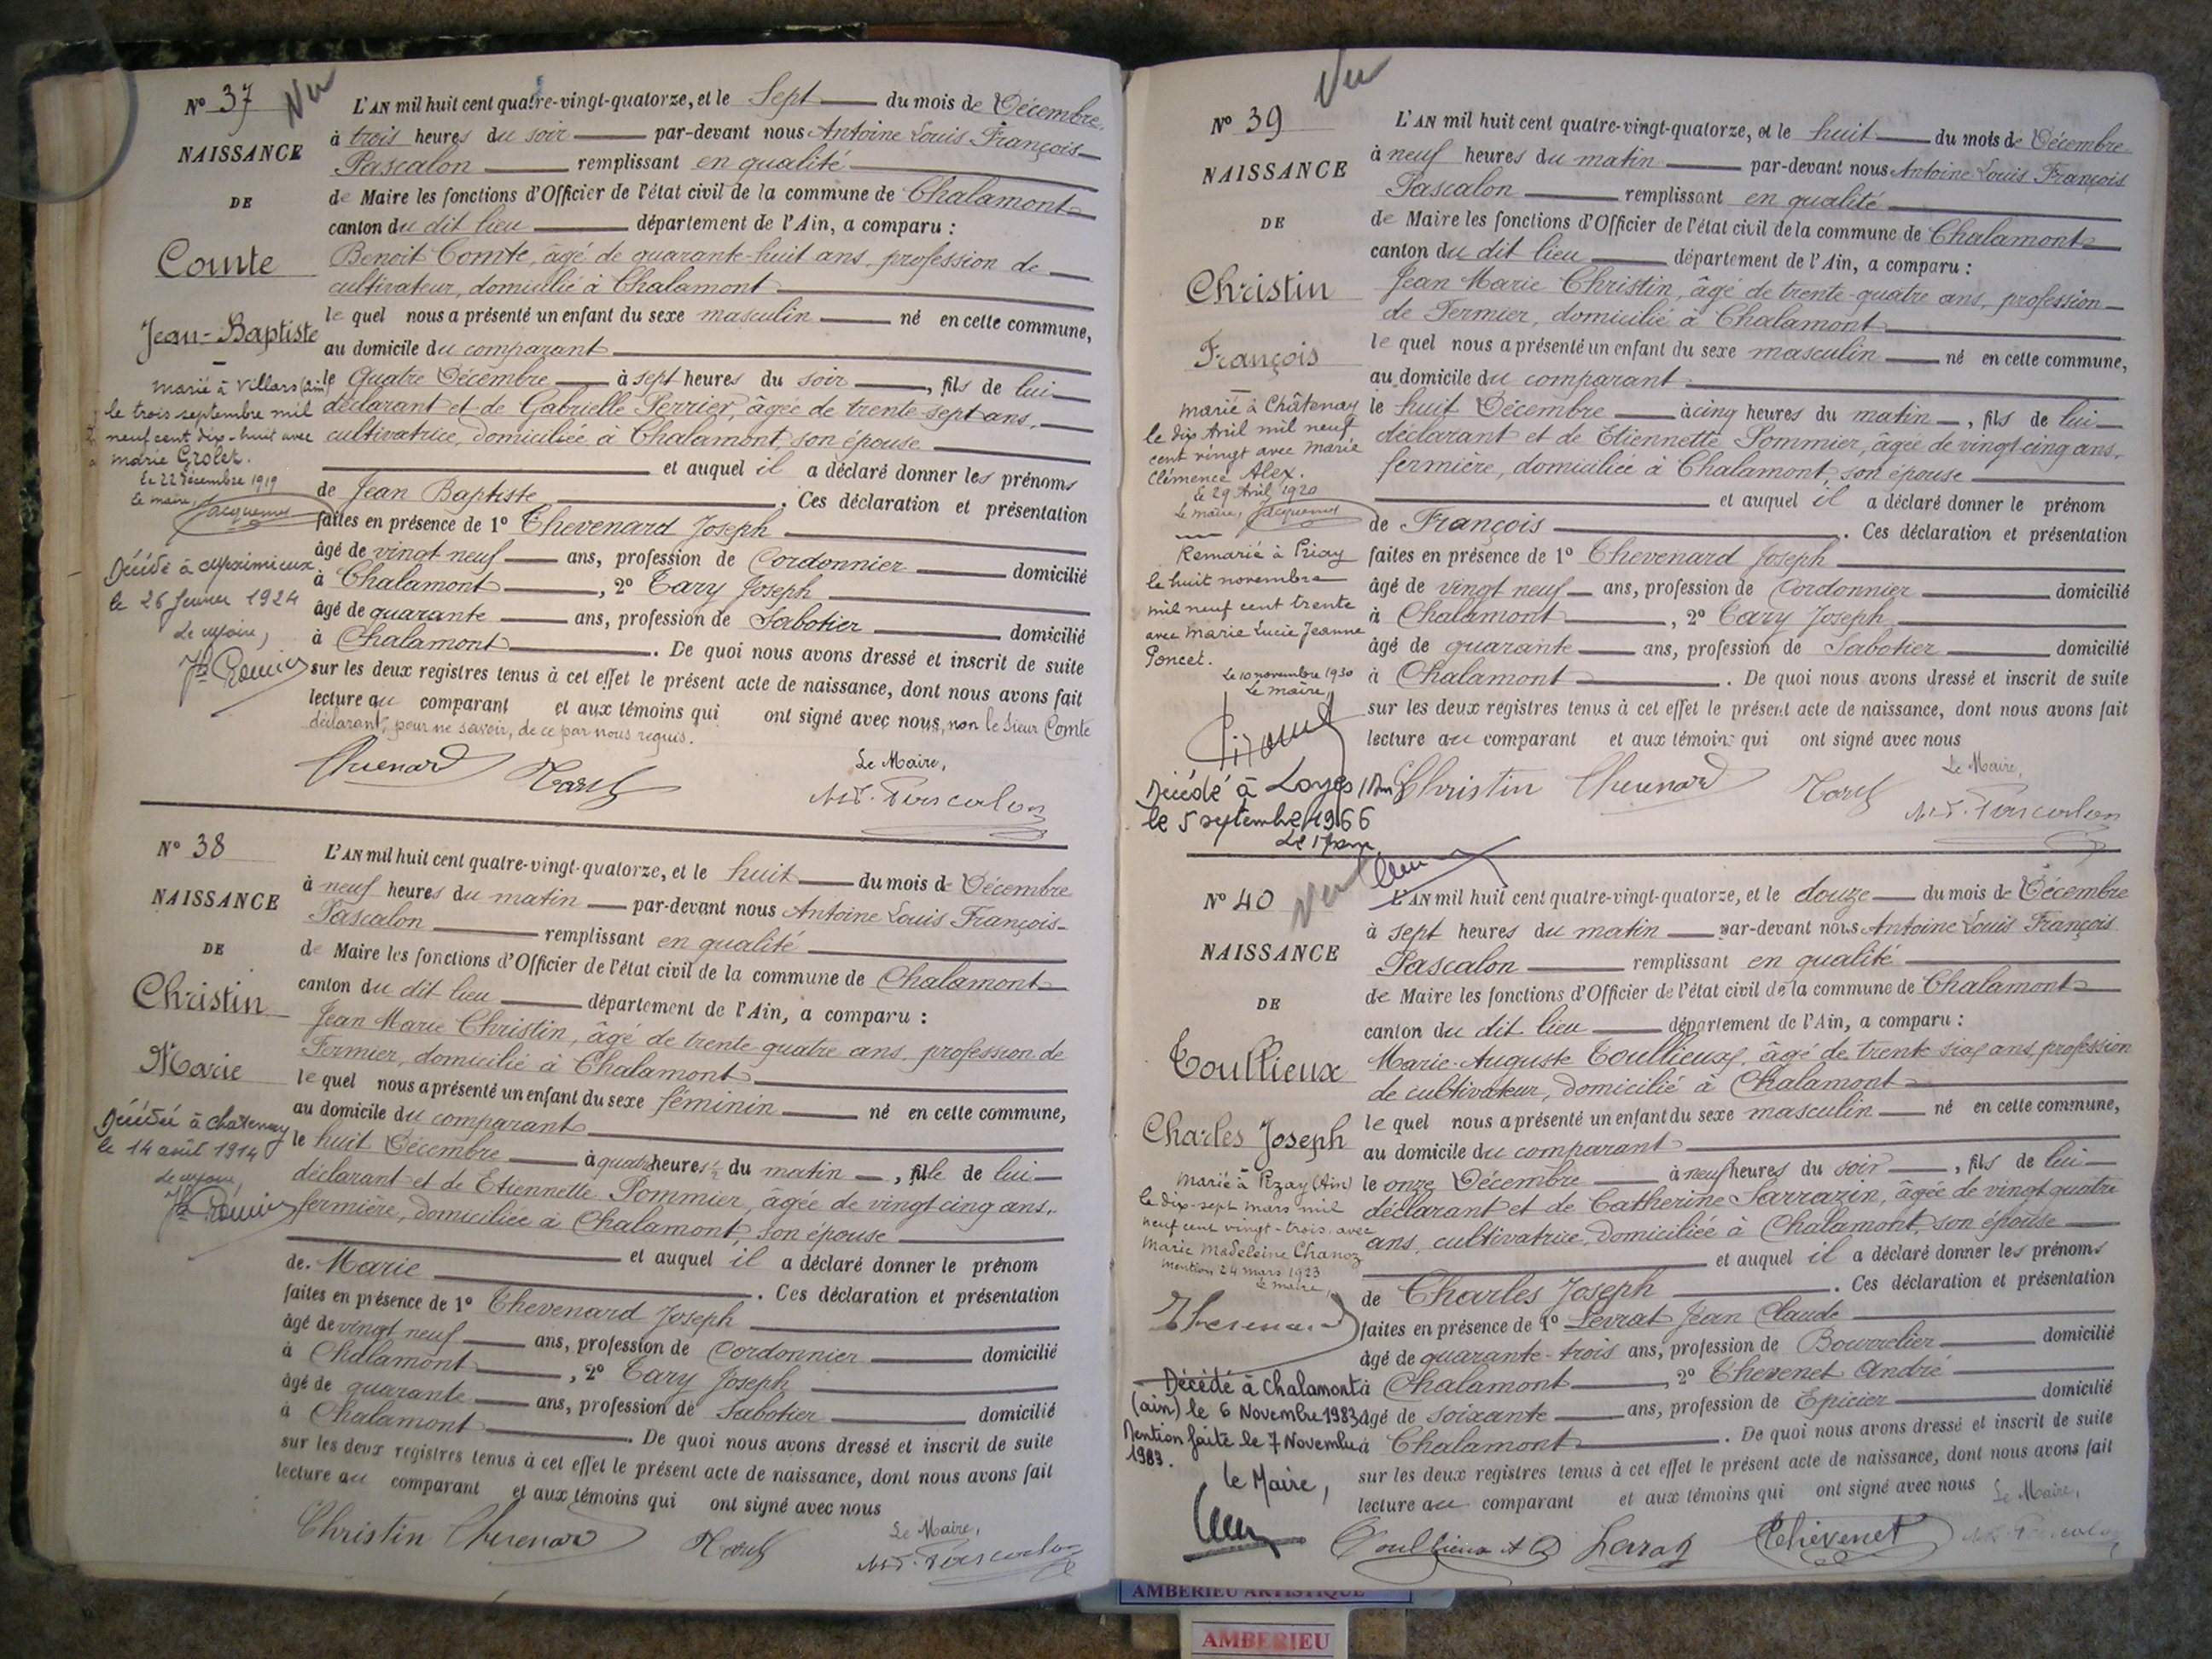 Nº 37
Vu
NAISSANCE
DE
Comte
Jean-Baptiste
marié à Villars (Ain)
le trois septembre mil
neuf cent dix-huit avec
Marie Grolet.
Le 22 Décembre 1919
Le maire, Jacquemet
Décédé à Meximieux
le 26 fevrier 1924
Le Maire,
L'AN mil huit cent quatre-vingt-quatorze, et le Sept du mois de Décembre
à trois heures du soir par-devant nous Antoine Louis François
Pascalon remplissant en qualité
de Maire les fonctions d'Officier de l'état civil de la commune de Chalamont
canton du dit lieu département de l'Ain, a comparu :
Benoit Comte, âgé de quarante-huit ans, profession de
cultivateur, domicilié à Chalamont
lequel nous a présenté un enfant du sexe masculin né en cette commune,
au domicile du comparant
le Quatre Décembre à sept heures du soir, fils de lui
déclarant et de Gabrielle Perrier, âgée de trente-sept ans,
cultivatrice, domiciliée à Chalamont, son épouse
et auquel il a déclaré donner les prénoms
de Jean Baptiste. Ces déclaration et présentation
faites en présence de 1º Thevenard Joseph
âgé de vingt neuf ans, profession de Cordonnier domicilié
à Chalamont, 2º Tary Joseph
âgé de quarante ans, profession de Sabotier domicilié
à Chalamont. De quoi nous avons dressé et inscrit de suite
sur les deux registres tenus à cet effet le présent acte de naissance, dont nous avons fait
lecture au comparant et aux témoins qui ont signé avec nous, non le Sieur Comte
déclarant, pour ne savoir, de ce par nous requis.
Le Maire,
Nº 38
NAISSANCE
DE
Christin
Marie
Décédée à Chatenay
le 14 août 1914
Le Maire,
L'AN mil huit cent quatre-vingt-quatorze, et le huit du mois de Décembre
à neuf heures du matin par-devant nous Antoine Louis François
Pascalon remplissant en qualité
de Maire les fonctions d'Officier de l'état civil de la commune de Chalamont
canton du dit lieu département de l'Ain, a comparu :
Jean Marie Christin, âgé de trente quatre ans, profession de
Fermier, domicilié à Chalamont
lequel nous a présenté un enfant du sexe féminin né en cette commune,
au domicile du comparant
le huit Décembre à quatre heures ½ du matin, fille de lui
déclarant et de Etiennette Pommier, âgée de vingt cinq ans,
fermière, domiciliée à Chalamont, son épouse
et auquel il a déclaré donner le prénom
de Marie. Ces déclaration et présentation
faites en présence de 1º Thevenard Joseph
âgé de vingt neuf ans, profession de Cordonnier domicilié
à Chalamont, 2º Tary Joseph
âgé de quarante ans, profession de Sabotier domicilié
à Chalamont. De quoi nous avons dressé et inscrit de suite
sur les deux registres tenus à cet effet le présent acte de naissance, dont nous avons fait
lecture au comparant et aux témoins qui ont signé avec nous
Le Maire,
Christin
Nº 39
Vu
NAISSANCE
DE
Christin
François
Marié à Châtenay
le dix Avril mil neuf
cent vingt avec Marie
Clémence Alex.
Le 29 Avril 1920
Le maire, Jacquemet
Remarié à Priay
le huit novembre
mil neuf cent trente
avec Marie Lucie Jeanne
Poncet.
Le 10 novembre 1930
Le Maire,
Décédé à Loyes (Ain)
le 5 septembre 1966
L'AN mil huit cent quatre-vingt-quatorze, et le huit du mois de Décembre
à neuf heures du matin par-devant nous Antoine Louis François
Pascalon remplissant en qualité
de Maire les fonctions d'Officier de l'état civil de la commune de Chalamont
canton du dit lieu département de l'Ain, a comparu :
Jean Marie Christin, âgé de trente-quatre ans, profession
de Fermier, domicilié à Chalamont
lequel nous a présenté un enfant du sexe masculin né en cette commune,
au domicile du comparant
le huit Décembre à cinq heures du matin, fils de lui
déclarant et de Etiennette Pommier, âgée de vingt-cinq ans,
fermière, domiciliée à Chalamont, son épouse
et auquel il a déclaré donner le prénom
de François. Ces déclaration et présentation
faites en présence de 1º Thevenard Joseph
âgé de vingt neuf ans, profession de Cordonnier domicilié
à Chalamont, 2º Tary Joseph
âgé de quarante ans, profession de Sabotier domicilié
à Chalamont. De quoi nous avons dressé et inscrit de suite
sur les deux registres tenus à cet effet le présent acte de naissance, dont nous avons fait
lecture au comparant et aux témoins qui ont signé avec nous
Le Maire,
Christin
Nº 40
Vu
NAISSANCE
DE
Toullieux
Charles Joseph
Marié à Pizay (Ain)
le dix-sept mars mil
neuf cent vingt-trois, avec
Marie Madeleine Chanoz
Mention 24 mars 1923
Le Maire,
Décédé à Chalamont
(ain) le 6 Novembre 1983
Mention faite le 7 Novembre
1983.
le Maire,
L'AN mil huit cent quatre-vingt-quatorze, et le douze du mois de Décembre
à sept heures du matin par-devant nous Antoine Louis François
Pascalon remplissant en qualité
de Maire les fonctions d'Officier de l'état civil de la commune de Chalamont
canton du dit lieu département de l'Ain, a comparu :
Marie-Auguste Toullieux, âgé de trente six ans, profession
de cultivateur, domicilié à Chalamont
lequel nous a présenté un enfant du sexe masculin né en cette commune,
au domicile du comparant
le onze Décembre à neuf heures du soir, fils de lui
déclarant et de Catherine Sarrazin, âgée de vingt quatre
ans, cultivatrice, domiciliée à Chalamont, son épouse
et auquel il a déclaré donner les prénoms
de Charles Joseph. Ces déclaration et présentation
faites en présence de 1º Levrat Jean Claude
âgé de quarante-trois ans, profession de Bourrelier domicilié
à Chalamont, 2º Thevenet André
âgé de soixante ans, profession de Epicier domicilié
à Chalamont. De quoi nous avons dressé et inscrit de suite
sur les deux registres tenus à cet effet le présent acte de naissance, dont nous avons fait
lecture au comparant et aux témoins qui ont signé avec nous
Le Maire,
Thevenet
AMBERIEU ARTISTIQUE
AMBERIEU